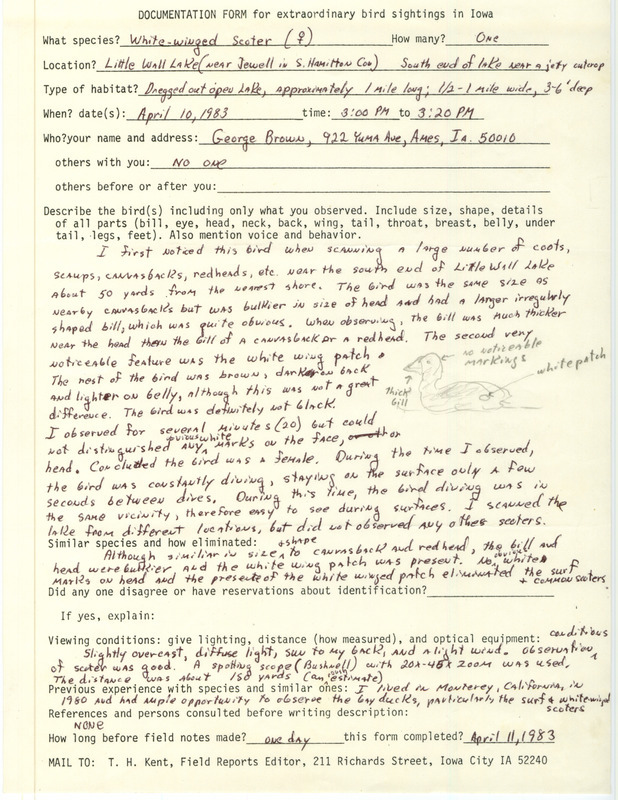 DOCUMENTATION FORM for extraordinary bird sightings in Iowa
What species? White-winged Scoter (♀) How many? One
Location? Little Wall Lake (near Jewell in S. Hamilton Co.) South end of lake near a jetty outcrop
Type of habitat? Dredged out open lake, approximately 1 mile long; 1/2-1 mile wide, 3-6' deep
When? date(s): April 10, 1983 time: 3:00 PM to 3:20 PM
Who? your name and address: George Brown, 922 Yuma Ave, Ames, Ia. 50010
others with you: No one
others before or after you:
Describe the bird(s) including only what you observed. Include size, shape, details
of all parts (bill, eye, head, neck, back, wing, tail, throat, breast, belly, under
tail, legs, feet). Also mention voice and behavior.
I first noticed this bird when scanning a large number of coots,
scaups, canvasbacks, redheads, etc. near the south end of Little Wall Lake
about 50 yards from the nearest shore. The bird was the same size as
nearby canvasbacks but was bulkier in size of head and had a larger irregularly
shaped bill, which was quite obvious. When observing, the bill was much thicker
near the head then the bill of a canvasback or a redhead. The second very
noticeable feature was the white wing patch.
The rest of the bird was brown, darker on back
and lighter on belly, although this was not a great
difference. The bird was definitely not black.
no noticeable markings
white patch
thick bill
I observed for several minutes (20) but could
not distinguished any obvious white marks on the face, or
head. Concluded the bird was a female. During the time I observed,
the bird was constantly diving, staying on the surface only a few
seconds between dives. During this time, the bird diving was in
the same vicinity, therefore easy to see during surfaces. I scanned the
lake from different locations, but did not observed any other scoters.
Similar species and how eliminated: + shape
Although similiar in size to canvasback and redhead, the bill and
head were bulkier and the white wing patch was present. No obvious white
marks on head and the presence of the white winged patch eliminated the surf
+ common scoters.
Did any one disagree or have reservations about identification?
If yes, explain:
Viewing conditions: give lighting, distance (how measured), and optical equipment: conditions
Slightly overcast, diffuse light, sun to my back, and a light wind. Observation
of scoter was good. A spotting scope (Bushnell) with 20x-45x zoom was used.
The distance was about 150 yards (an estimate)
Previous experience with species and similar ones: I lived in Monterey, California, in
1980 and had ample opportunity to observe the bay ducks, particularly the surf & white-winged
scoters
References and persons consulted before writing description:
None
How long before field notes made? one day this form completed? April 11, 1983
MAIL TO: T. H. Kent, Field Reports Editor, 211 Richards Street, Iowa City IA 52240